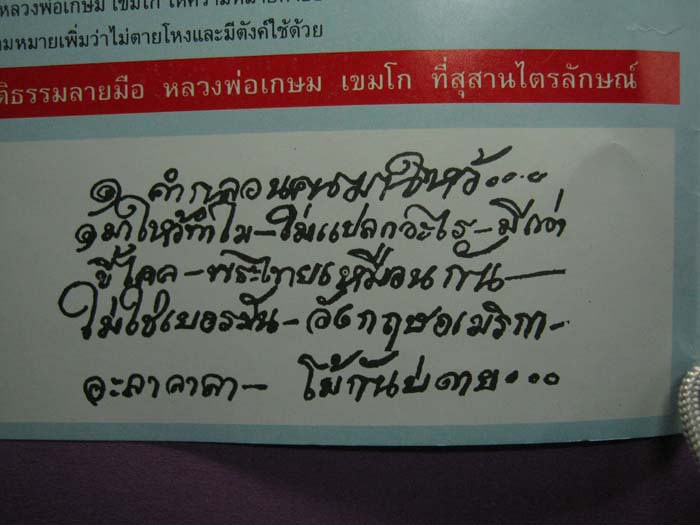 หลวงพ่อเกษม เขมโก ให้ความหมาย
ามหมายเพิ่มว่าไม่ตายโหงและมีตังค์ใช้ด้วย
ติธรรมลายมือ หลวงพ่อเกษม เขมโก ที่สุสานไตรลักษณ์
๑ คำกลอนคนมาไหว้....
๑มาไหว้ทำไม-ไม่แปลกอะไร-มีแต่
ขี้ไคล-พระไทยเหมือนกัน—
ไม่ใช่เยอรมัน-อังกฤษอเมริกา-
อะลาลาลา-